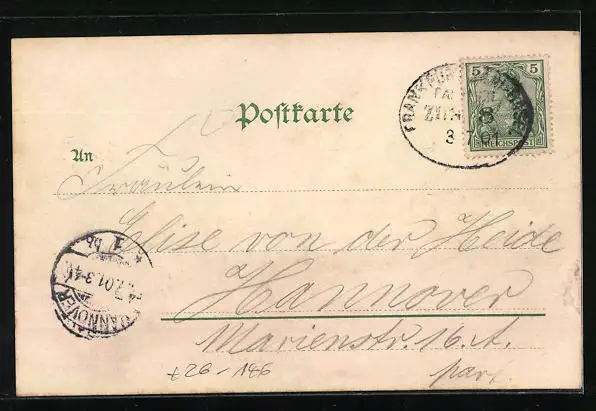 Postkarte
FRANKFURT
ZUG 8
3 7 01
5 5
REICHSPOST
An
Fräulein
Elise von der Heide
Hannover
Marienstr. 16. A.
part.
HANNOVER
7.01.3-4
1 bb
726-186